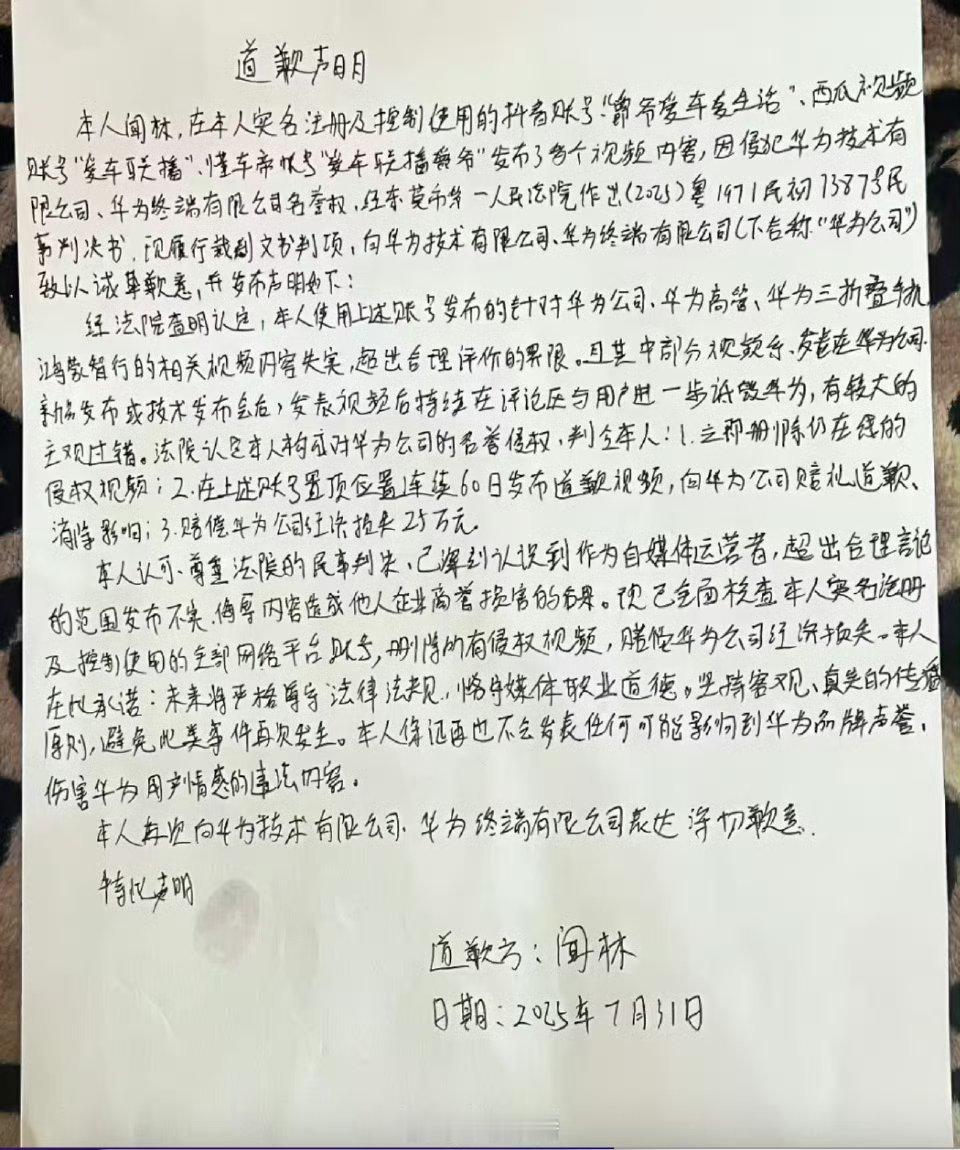 道歉声明
本人闻林，在本人实名注册及控制使用的抖音账号“爵爷爱车爱生活”、西瓜视频
账号“爱车联播”、懂车帝帐号“爱车联播爵爷”发布了多个视频内容，因侵犯华为技术有
限公司、华为终端有限公司名誉权，经东莞市第一人民法院作出（2025）粤1971民初13873号民
事判决书，现履行裁判文书判项，向华为技术有限公司、华为终端有限公司（下合称“华为公司”）
致以诚挚歉意，并发布声明如下：
经法院查明认定，本人使用上述账号发布的针对华为公司、华为高管、华为三折叠手机
鸿蒙智行的相关视频内容失实，超出合理评价的界限。且其中部分视频系发起在华为公司
新品发布或技术发布会后，发表视频后持续在评论区与用户进一步诋毁华为，有较大的
主观过错。法院认定本人构成对华为公司的名誉侵权，判令本人：1.立即删除仍在线的
侵权视频；2.在上述账号置顶位置连续60日发布道歉视频，向华为公司赔礼道歉、
消除影响；3.赔偿华为公司经济损失25万元。
本人认可、尊重法院的民事判决，已深刻认识到作为自媒体运营者，超出合理言论
的范围发布不实、侮辱内容造成他人企业商誉损害的后果。现已全面核查本人实名注册
及控制使用的全部网络平台账号，删除所有侵权视频，赔偿华为公司经济损失。本人
在此承诺：未来将严格遵守法律法规，恪守媒体职业道德。坚持客观、真实的传播
原则，避免此类事件再次发生。本人保证再也不会发表任何可能影响到华为品牌声誉、
伤害华为用户情感的违法内容。
本人再次向华为技术有限公司、华为终端有限公司表达深切歉意．
特此声明
道歉方：闻林
日期：2025年7月31日